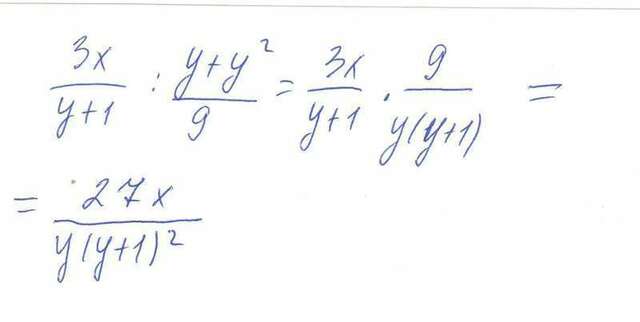 3x/(y+1) : (y+y²)/9 = 3x/(y+1) · 9/(y(y+1)) =
= 27x/(y(y+1)²)